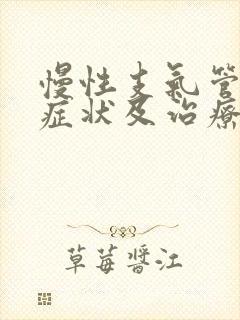 慢性支氣管
症状及治療
草莓醬江